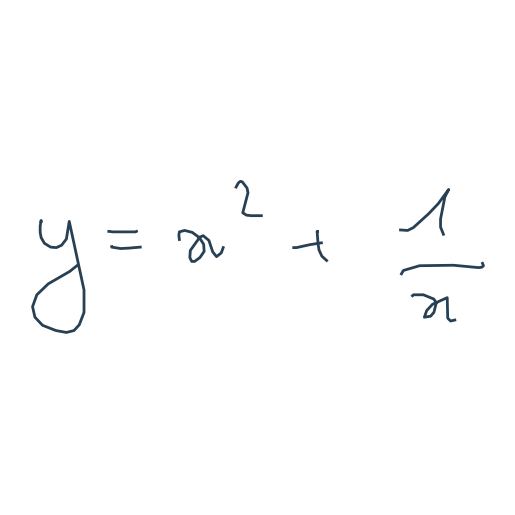 y = x² + 1/x